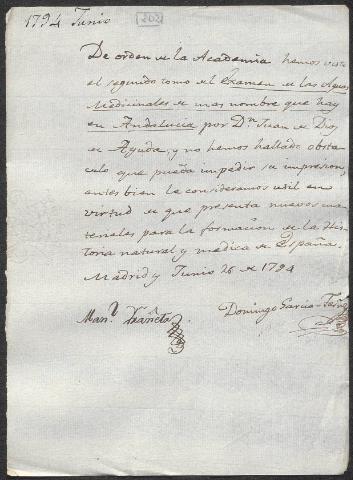 1794 Junio
202
De orden de la Academia hemos visto
el segundo tomo del Examen de las Aguas
Medicinales de mas nombre que hay
en Andalucia por Dn. Juan de Dios
de Ayuda, y no hemos hallado obsta
culo que pueda impedir su impresion,
antes bien la consideramos util en
virtud de que presenta nuevos ma
teriales para la formacion de la His
toria natural y medica de España.
Madrid y Junio 26 de 1794
Manl.
Domingo Garcia